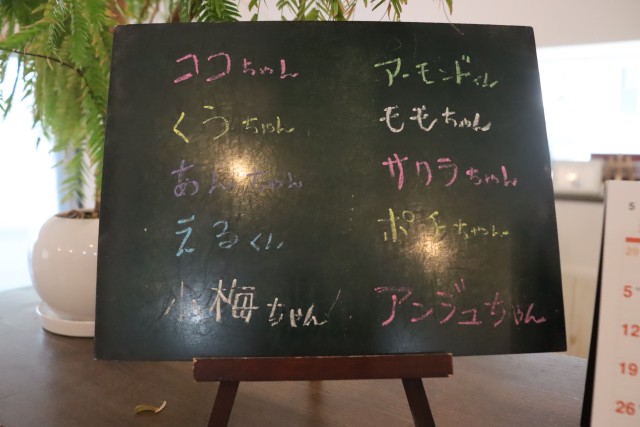 ココちゃん
くうちゃん
あんちゃん
えるくん
小梅ちゃん
アーモンドくん
モモちゃん
サクラちゃん
ポチちゃん
アンジュちゃん
5
29
5
12
19
26